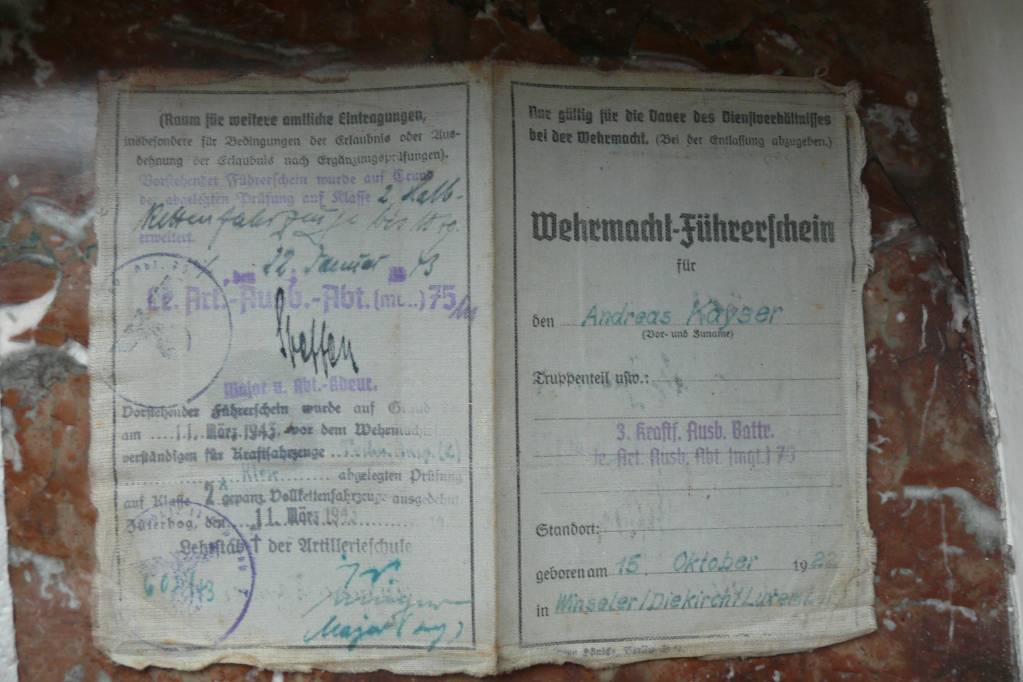 (Raum für weitere amtliche Eintragungen,
insbesondere für Bedingungen der Erlaubnis oder Aus-
dehnung der Erlaubnis nach Ergänzungsprüfungen).
Vorstehender Führerschein wurde auf Grund
der abgelegten Prüfung auf Klasse 2 Halb-
kettenfahrzeuge bis
erweitert.
den 22. Januar 43
Le. Art.-Ausb.-Abt. 75
Major u. Abt.-Kdeur.
Vorstehender Führerschein wurde auf Grund
am 11. März 1943 vor dem
verständigen für Kraftfahrzeuge
abgelegten Prüfung
auf Klasse 2 gepanz. Vollkettenfahrzeuge ausgedehnt
Jüterbog, den 11. März 1943
Lehrstab der Artillerieschule
Major
Nur gültig für die Dauer des Dienstverhältnisses
bei der Wehrmacht. (Bei der Entlassung abzugeben.)
Wehrmacht-Führerschein
für
den Andreas Kayser
(Vor- und Zuname)
Truppenteil usw.:
3. Kraftf. Ausb. Battr.
le. Art. Ausb. Abt. (mot.) 75
Standort:
geboren am 15. Oktober 1922
in Winseler/Diekirch/